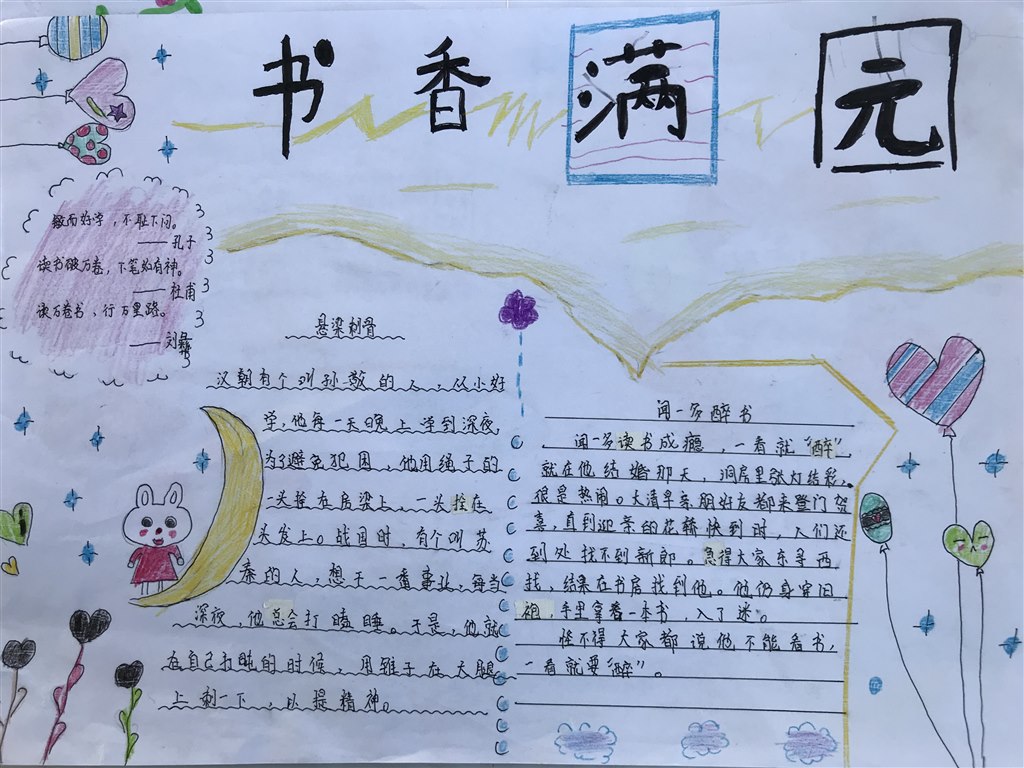 书香满元
敏而好学，不耻下问。
——孔子
读书破万卷，下笔如有神。
——杜甫
读万卷书，行万里路。
——刘彝
悬梁刺骨
汉朝有个叫孙敬的人，从小好
学，他每一天晚上学到深夜，
为了避免犯困，他用绳子的
一头拴在房梁上，一头拴在
头发上。战国时，有个叫苏
秦的人，想干一番事业，每当
深夜，他总会打瞌睡。于是，他就
在自己打盹的时候，用锥子在大腿
上刺一下，以提精神。
闻一多醉书
闻一多读书成瘾，一看就“醉”，
就在他结婚那天，洞房里张灯结彩，
很是热闹。大清早亲朋好友都来登门贺
喜，直到迎亲的花轿快到时，人们还
到处找不到新郎。急得大家东寻西
找，结果在书房找到他。他仍身穿旧
袍，手里拿着一本书，入了迷。
怪不得大家都说他不能看书，
一看就要“醉”。